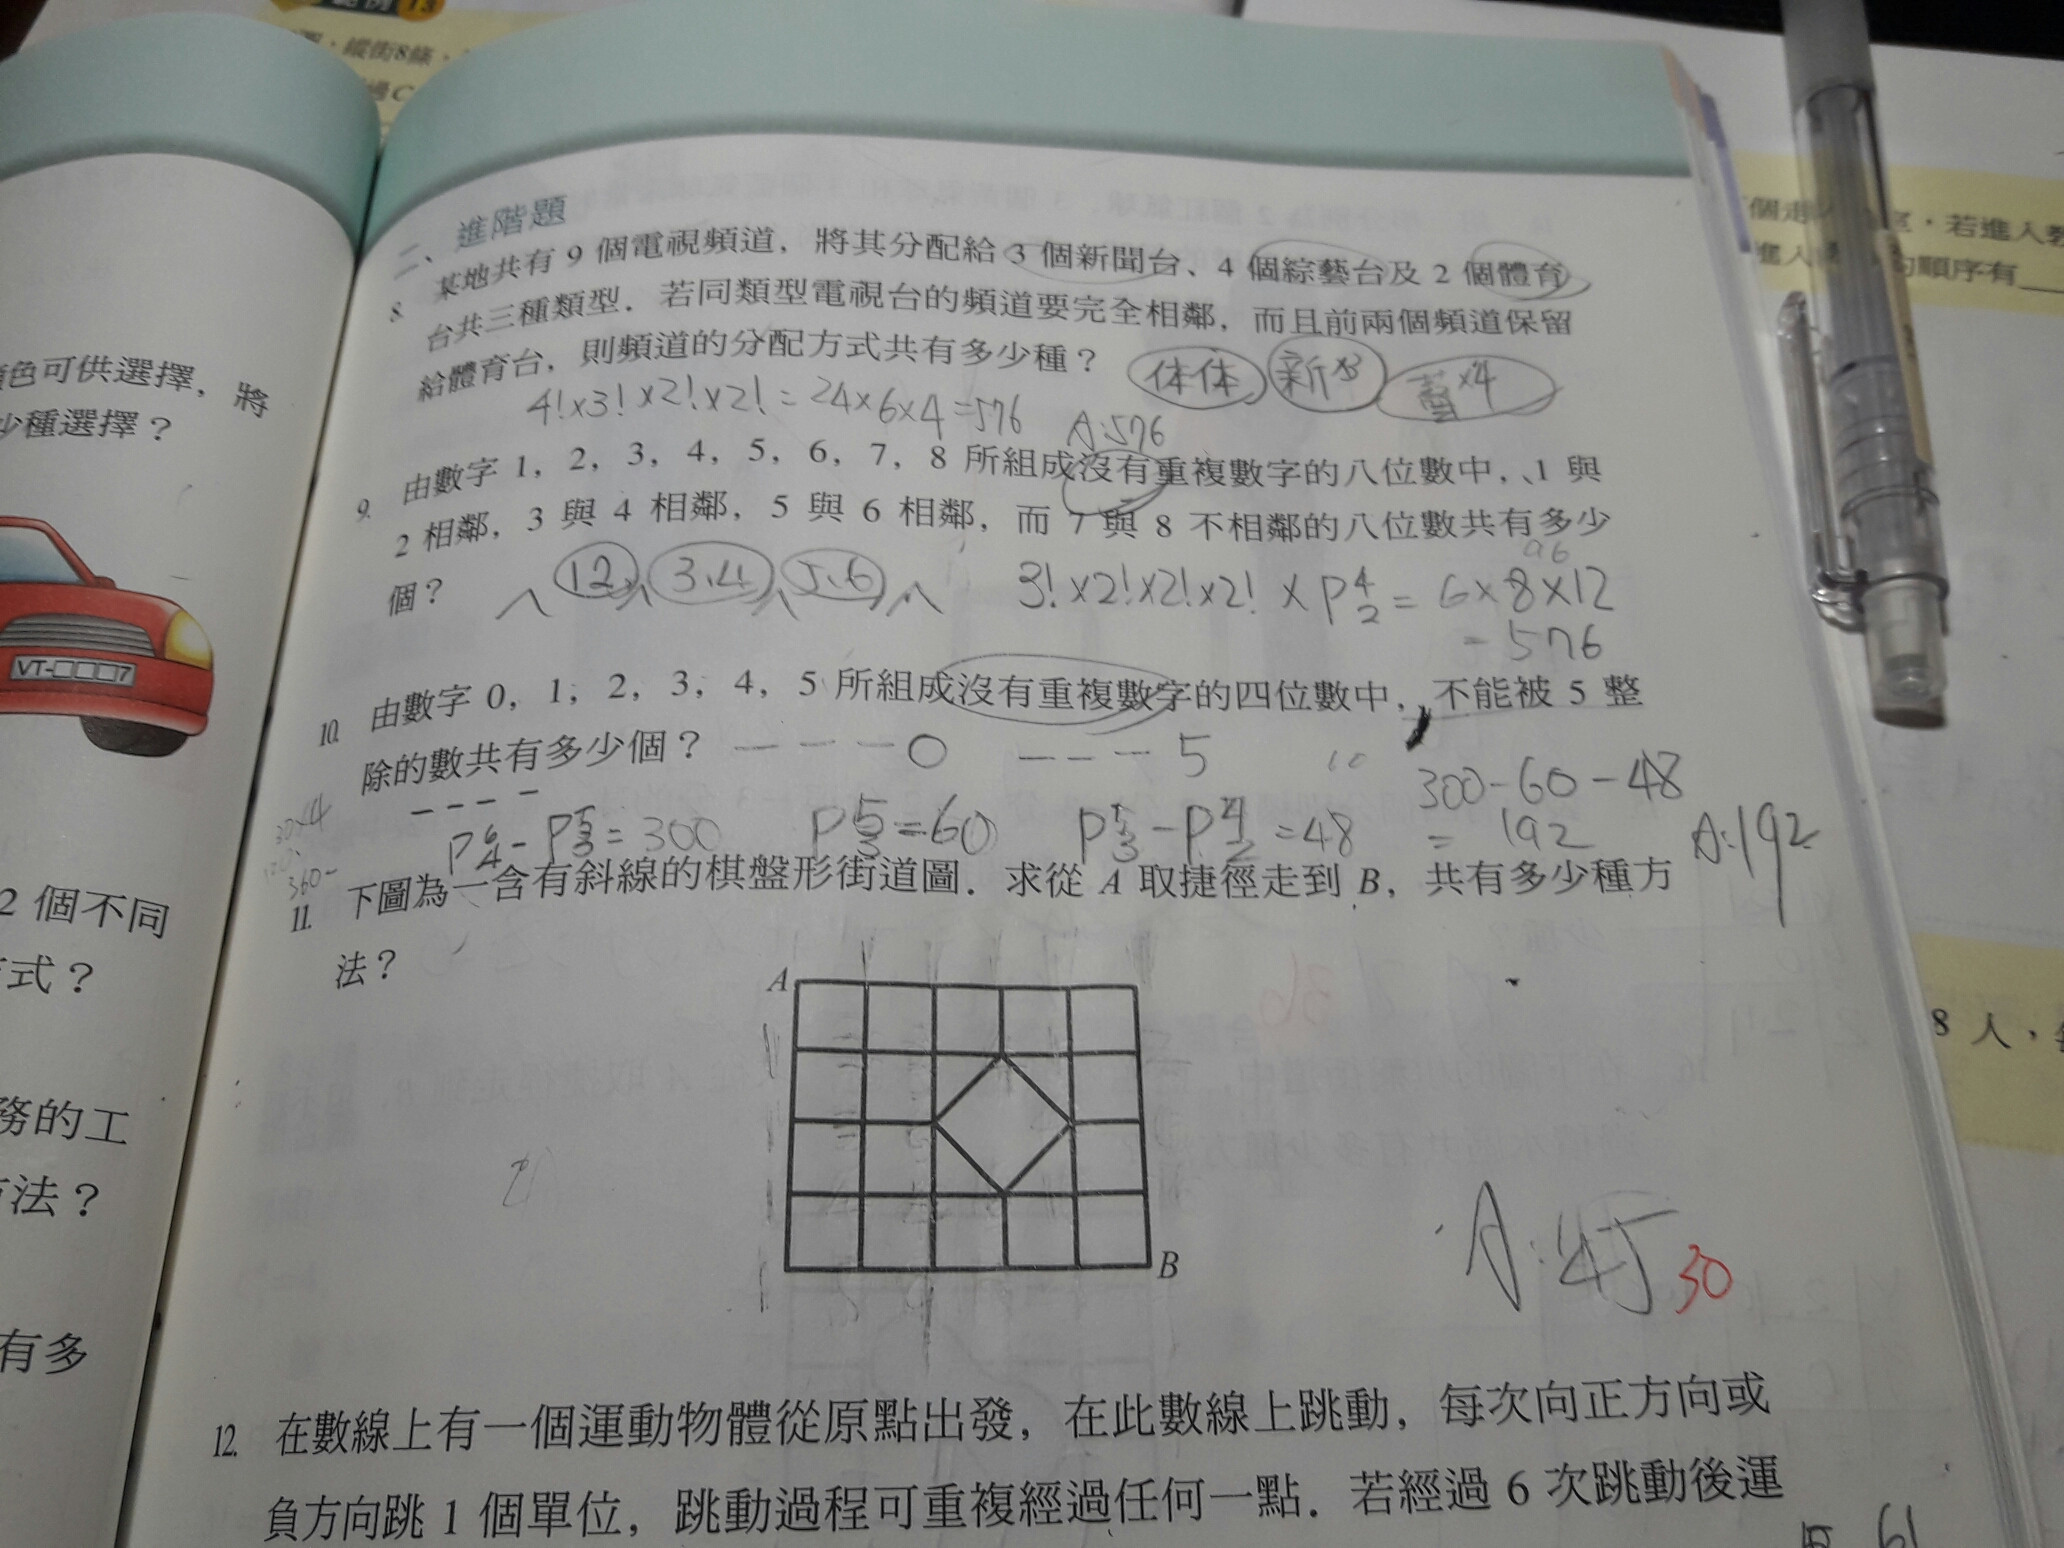 範例 13
縱街8條，
過C
二、進階題
8. 某地共有 9 個電視頻道，將其分配給 3 個新聞台、4 個綜藝台及 2 個體育
台共三種類型．若同類型電視台的頻道要完全相鄰，而且前兩個頻道保留
給體育台，則頻道的分配方式共有多少種？
体体 新×3 藝×4
4!×3!×2!×2!=24×6×4=576 A:576
9. 由數字 1，2，3，4，5，6，7，8 所組成沒有重複數字的八位數中，1 與
2 相鄰，3 與 4 相鄰，5 與 6 相鄰，而 7 與 8 不相鄰的八位數共有多少
個？
12 3.4 5.6 3!×2!×2!×2!×P⁴₂=6×8×12
96
=576
10. 由數字 0，1，2，3，4，5 所組成沒有重複數字的四位數中，不能被 5 整
除的數共有多少個？ ———0 ———5
————
P⁶₄-P⁵₃=300 P⁵₃=60 P⁵₃-P⁴₂=48
300-60-48
=192 A:192
360-
11. 下圖為一含有斜線的棋盤形街道圖．求從 A 取捷徑走到 B，共有多少種方
法？
A
B
A:45 30
12. 在數線上有一個運動物體從原點出發，在此數線上跳動，每次向正方向或
負方向跳 1 個單位，跳動過程可重複經過任何一點．若經過 6 次跳動後運
顏色可供選擇，將
少種選擇？
VT-□□□7
2 個不同
方式？
務的工
方法？
有多
室，若進入教
順序有
8 人，